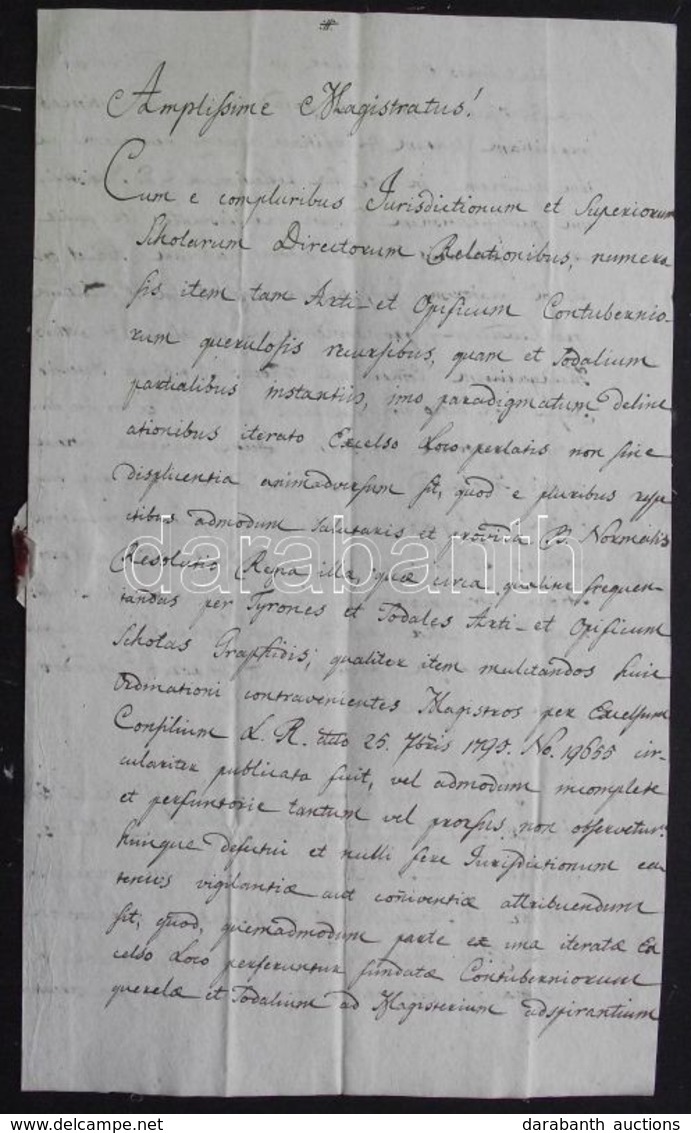 Amplissime Magistratus!
Cum e compluribus Jurisdictionum et Superiorum
Scholarum Directorum Relationibus, numero
sis item tam Arti- et Opificum Contubernio-
rum querulosis recursibus, quam et Sodalium
partialibus instantiis, imo paradigmatum deline
ationibus iterato Excelso Loco perlatis non sine
displicentia animadversum sit, quod e pluribus respe
ctibus admodum salutaris et provida B. Normalis
Resolutio Regia illa, quae circa qualiter frequen
tandas per Tyrones et Sodales Arti- et Opificum
Scholas Graphidis, qualiter item mulctandos huic
Ordinationi contravenientes Magistros per Excelsum
Consilium L. R. ddto 25. 7bris 1795. No. 19655 cir-
culariter publicata fuit, vel admodum incomplete
et perfunctorie tantum vel prorsus non observetur.
huncque defectui et nulli fere Jurisdictionum ea
tenus vigilantiae aut coniventiae attribuendum
sit, quod, quemadmodum parte ex una iteratae Ex
celso Loco perferuntur fundatae Contuberniorum
querelae et Sodalium ad Magisterium adspirantium
darabanth
darabanth auctions